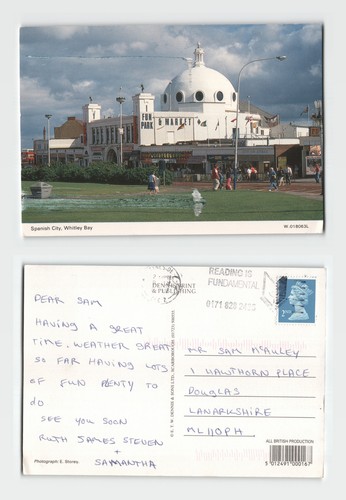 FUN
PARK
MARKET
Spanish City, Whitley Bay
W.018063L
DENNIS PRINT
& PUBLISHING
READING IS
FUNDAMENTAL
0171 828 2435
1ST
DEAR SAM
HAVING A GREAT
TIME, WEATHER GREAT
SO FAR HAVING LOTS
OF FUN PLENTY TO
do
SEE YOU SOON
RUTH JAMES STEVEN
+
SAMANTHA
Photograph: E. Bowness
© E.T.W. DENNIS & SONS LTD., SCARBOROUGH
MR SAM McAULEY
1 HAWTHORN PLACE
DOUGLAS
LANARKSHIRE
ML11 0PH
ALL BRITISH PRODUCTION
5 012491 000167